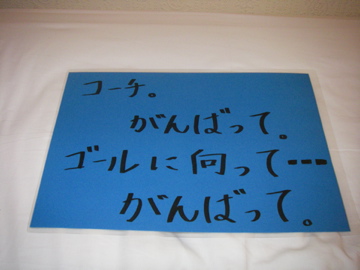 コーチ。
がんばって。
ゴールに向って---
がんばって。